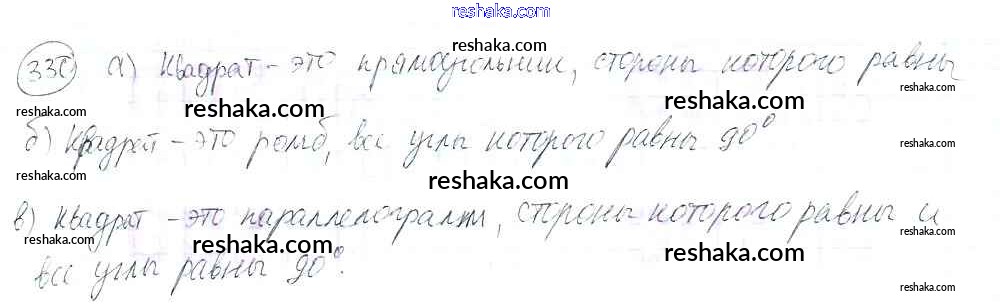 reshaka.com
330 а) Квадрат - это прямоугольник, стороны которого равны
б) Квадрат - это ромб, все углы которого равны 90°
в) Квадрат - это параллелограмм, стороны которого равны и
все углы равны 90°.
reshaka.com
reshaka.com
reshaka.com
reshaka.com
reshaka.com
reshaka.com
reshaka.com
reshaka.com
reshaka.com
reshaka.com
reshaka.com
reshaka.com
reshaka.com